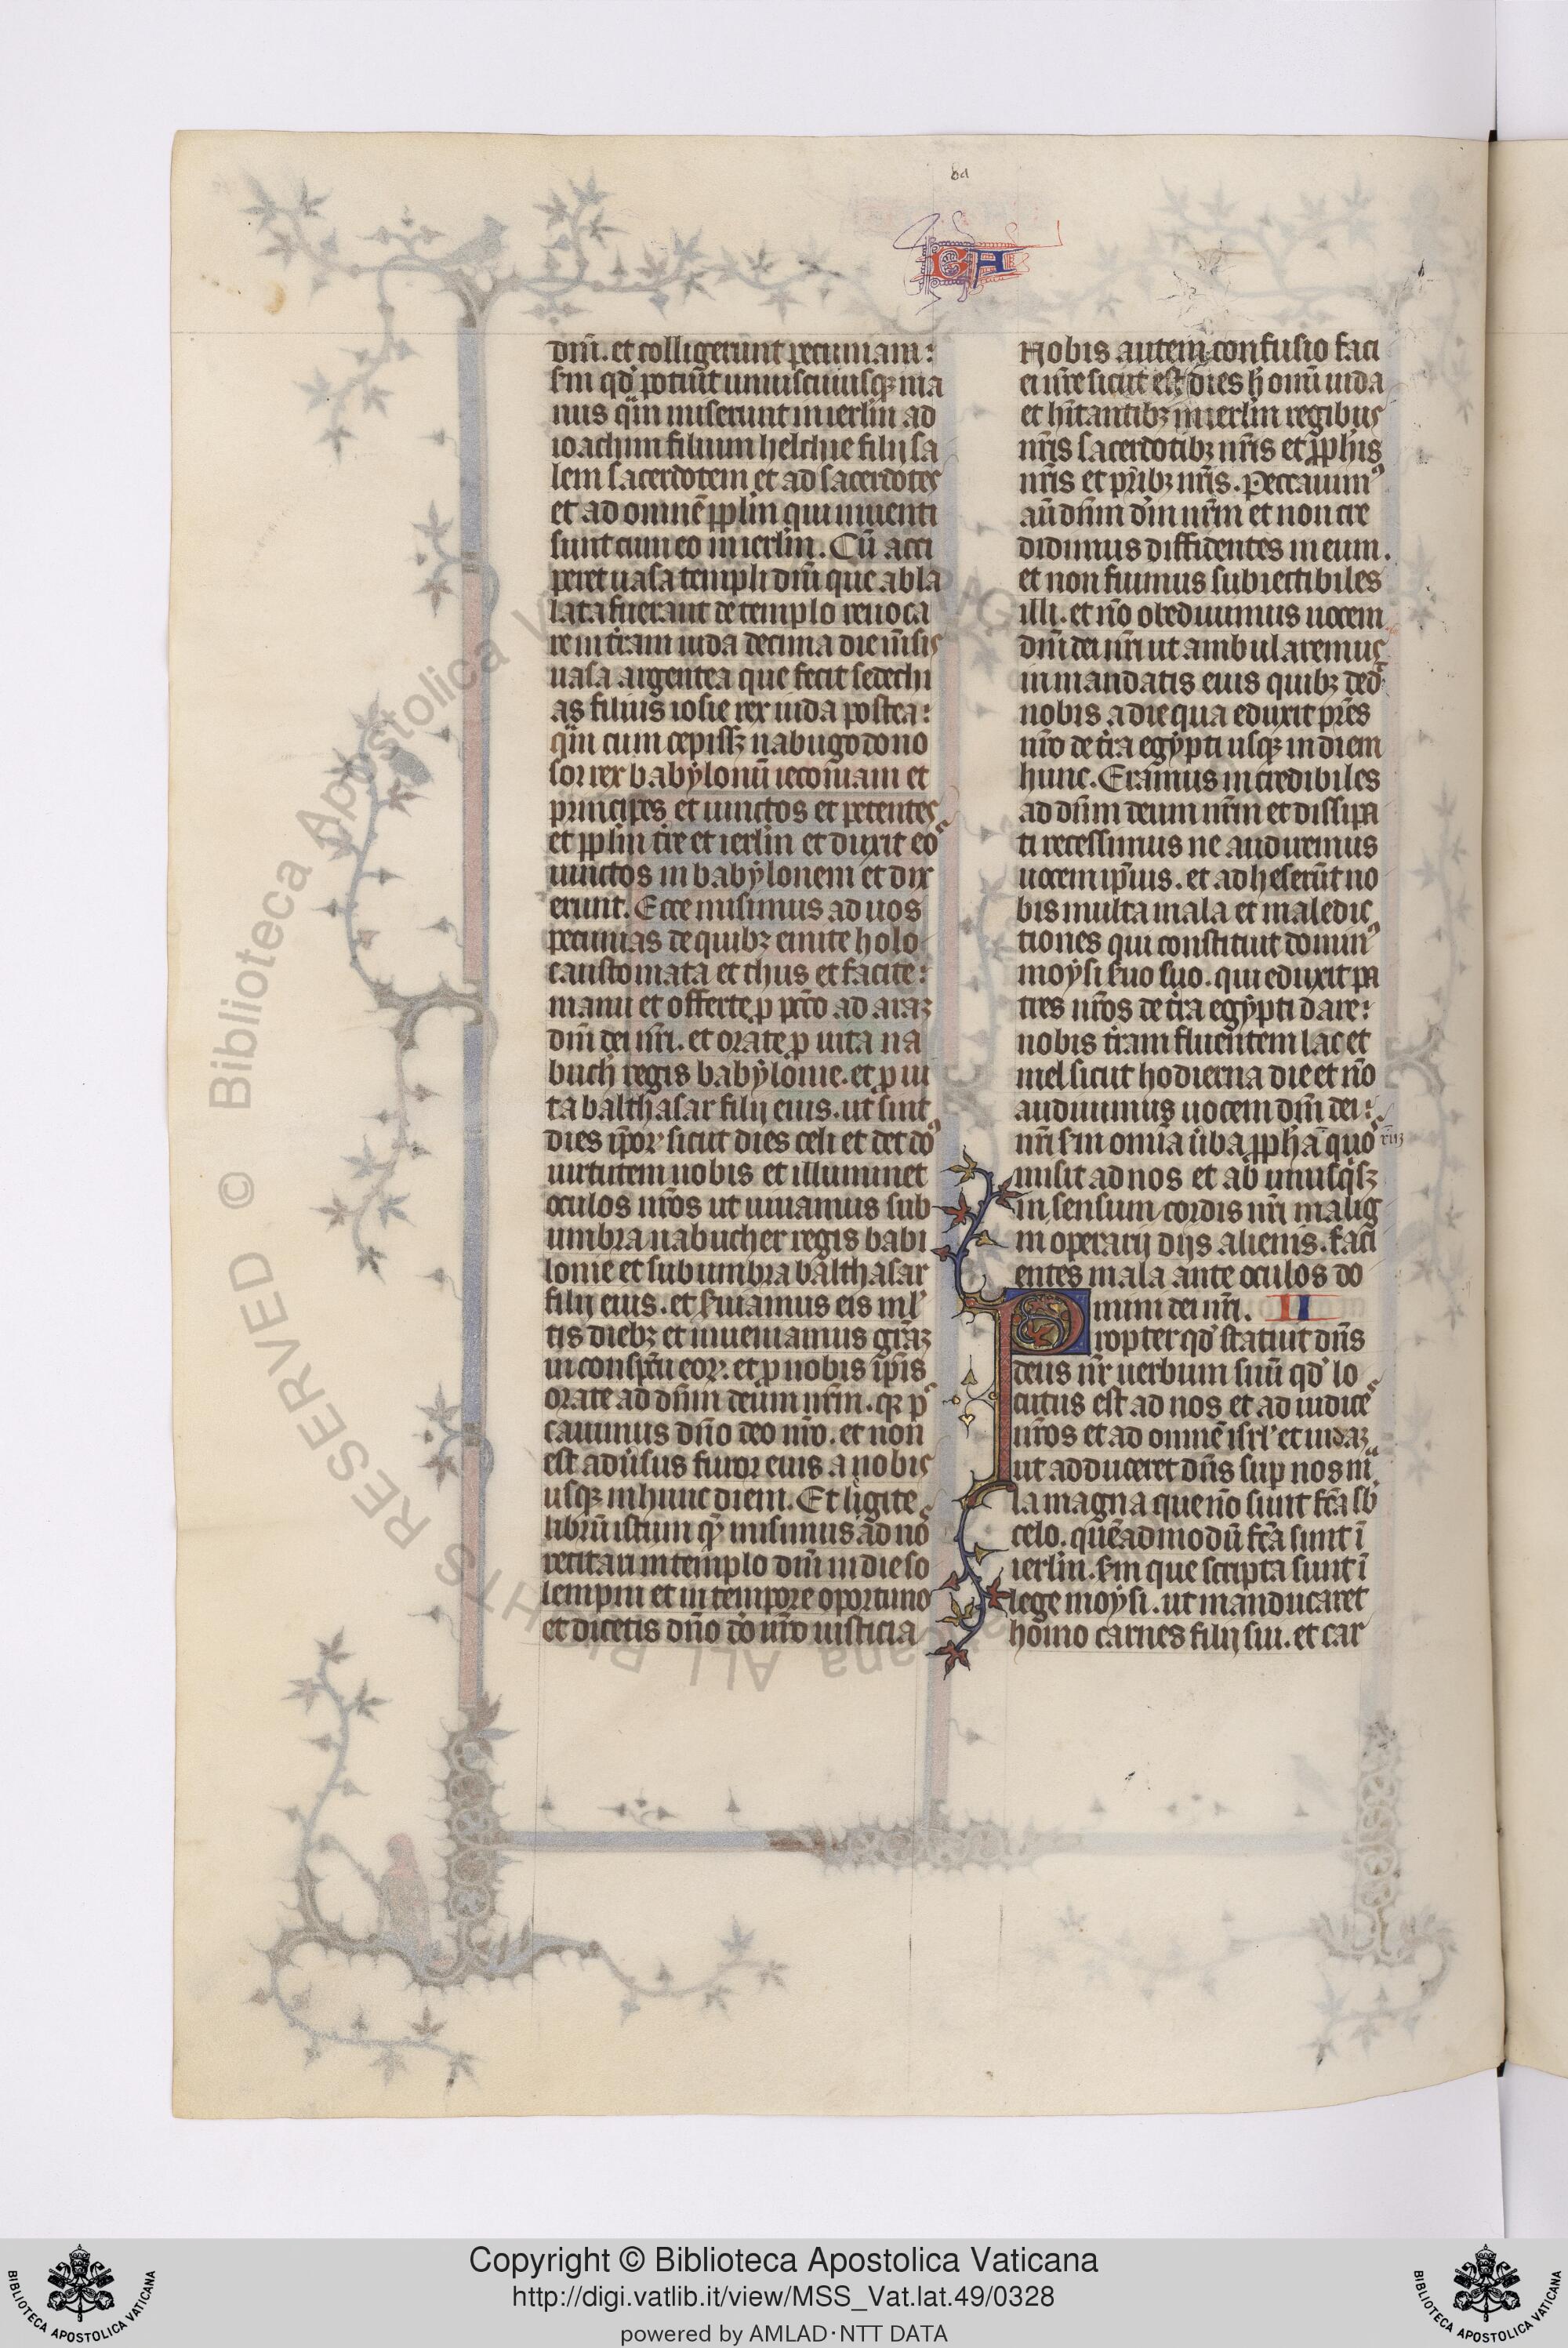 ba
CA
dnī. et colligerunt pecuniam:
sm̄ qd' potuīt uniuscuiusqꝫ ma
nus qm̄ miserunt in ierlm̄ ad
ioachim filium helchie filij sa
lem sacerdotem et ad sacerdotes
et ad omnē pplm̄ qui inuenti
sunt cum eo in ierlm̄. Cū acci
peret uasa templi dnī que abla
lata fuerant de templo reuoca
re in tr̄am iuda decima die m̄sis
uasa argentea que fecit sedechi
as filius iosie rex iuda postea:
qm̄ cum cepissꝫ nabugodono
sor rex babẏlonū ieconiam et
principes et uinctos et petentes
et pplm̄ tr̄e et ierlm̄ et duxit eos
uinctos in babẏlonem et dix
erunt. Ecce misimus ad uos
pecunias de quibꝫ emite holo
caustomata et thus et facite:
manu et offerte ꝓ pctō ad araꝫ
dnī dei nr̄i. et orate ꝓ uita na
buch regis babẏlonie. et ꝓ ui
ta balthasar filij eius. ut sint
dies ip̄oꝝ sicut dies celi et det do9
uirtutem nobis et illuminet
oculos nr̄os ut uiuamus sub
umbra nabucher regis babi
lonie et sub umbra balthasar
filij eius. et s̄uiamus eis ml'
tis diebꝫ et inueniamus gr̄aꝫ
in conspc̄u eoꝝ. et ꝓ nobis ip̄is
orate ad dnm̄ deum nr̄m. qꝛ pc
cauimus dnō deo nr̄o. et non
est adūsus furor eius a nobis
usqꝫ in hunc diem. Et ligite
librū istum qm̄ misimus ad nos
recitari in templo dnī in die so
lempni et in tempore oportuno
et dicetis dnō dō nr̄o iusticia
Nobis autem confusio faci
ei nr̄e sicut est dies h̄ omī iuda
et hītantibꝫ in ierlm̄ regibus
nr̄is sacerdotibꝫ nr̄is et ꝓphis
nr̄is et pr̄ibꝫ nr̄is. Peccauim9
an̄ dnm̄ dm̄ nr̄m et non cre
didimus diffidentes in eum.
et non fuimus subiectibiles
illi. et nō obediuimus uocem
dnī dei nr̄i ut ambularemus
in mandatis eius quibꝫ ded'
nobis a die qua eduxit pr̄es
nr̄o de tr̄a egẏpti usqꝫ in diem
hunc. Eramus incredibiles
ad dnm̄ deum nr̄m et dissipa
ti recessimus ne audiremus
uocem ip̄ius. et adheserūt no
bis multa mala et maledic
tiones qui constituit domin9
moẏsi s̄uo suo. qui eduxit pa
tres nr̄os de tr̄a egẏpti dare:
nobis tr̄am fluentem lac et
mel sicut hodierna die et nō
audiuimus uocem dnī dei:
nr̄i sm̄ omīa ūba ꝓphā quo rūꝫ
misit ad nos et ab unusqisꝫ
in sensum cordis nr̄i malig
in operarij dijs alienis. faci
entes mala ante oculos do
mini dei nr̄i. II
Propter qd' statuit dns̄
deus nr̄ uerbum suū qd' lo
cutus est ad nos et ad iudices
nr̄os et ad omnē isrl' et iudaꝫ
ut adduceret dns̄ sup nos ma
la magna que nō sunt fcā sb'
celo. quēadmodū fcā sunt ī
ierlm̄. sm̄ que scripta sunt ī
lege moẏsi. ut manducaret
homo carnes filij sui. et car
© Biblioteca Apostolica Vaticana ALL RIGHTS RESERVED
BIBLIOTECA APOSTOLICA VATICANA
Copyright © Biblioteca Apostolica Vaticana
http://digi.vatlib.it/view/MSS_Vat.lat.49/0328
powered by AMLAD·NTT DATA
BIBLIOTECA APOSTOLICA VATICANA